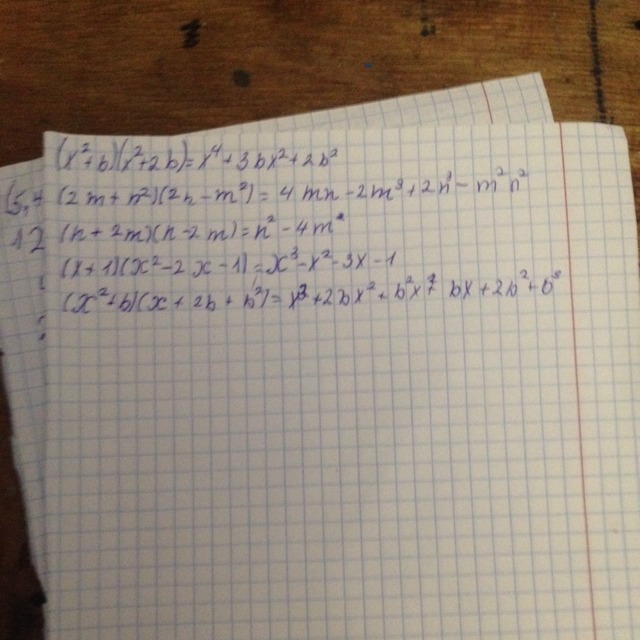 (x²+b)(x²+2b)=x⁴+3bx²+2b²
(2m+n²)(2n-m²)=4mn-2m³+2n³-m²n²
(n+2m)(n-2m)=n²-4m²
(x+1)(x²-2x-1)=x³-x²-3x-1
(x²+b)(x+2b+b²)=x³+2bx²+b²x²+bx+2b²+b³
(5,
12